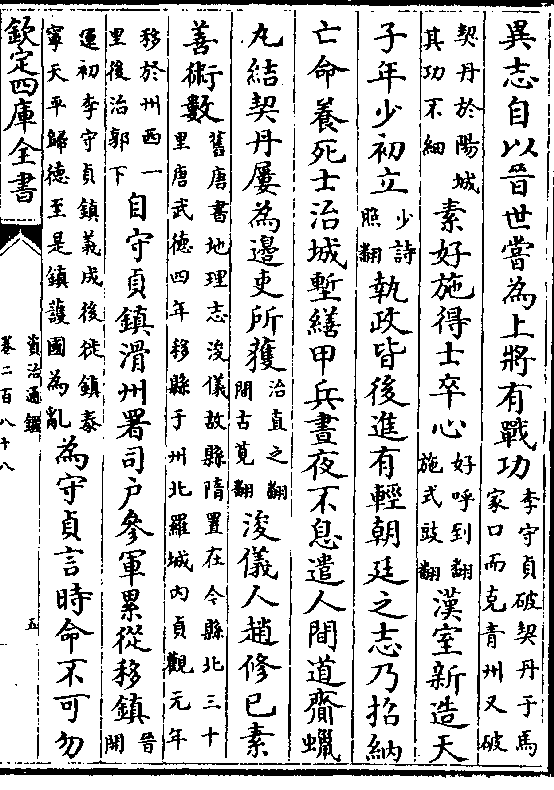 異志自以晉世嘗為上將有戰功李守貞破契丹于馬家口而克青州又破
契丹於陽城其功不細素好施得士卒心好呼到翻施式豉翻漢室新造天
子年少初立少詩照翻執政皆後進有輕朝廷之志乃招納
亡命養死士治城塹繕甲兵晝夜不息遣人間道齎蠟
丸結契丹屢為邊吏所獲治直之翻間古莧翻浚儀人趙修已素
善術數舊唐書地理志浚儀故縣隋置在今縣北三十里唐武德四年移縣于州北羅城內貞觀元年
移於州西一里後治郭下自守貞鎮滑州署司戶參軍累從移鎮晉開
運初李守貞鎮義成後徙鎮泰寧天平歸德至是鎮護國為亂為守貞言時命不可勿
欽定四庫全書
資治通鑑
卷二百八十八
五